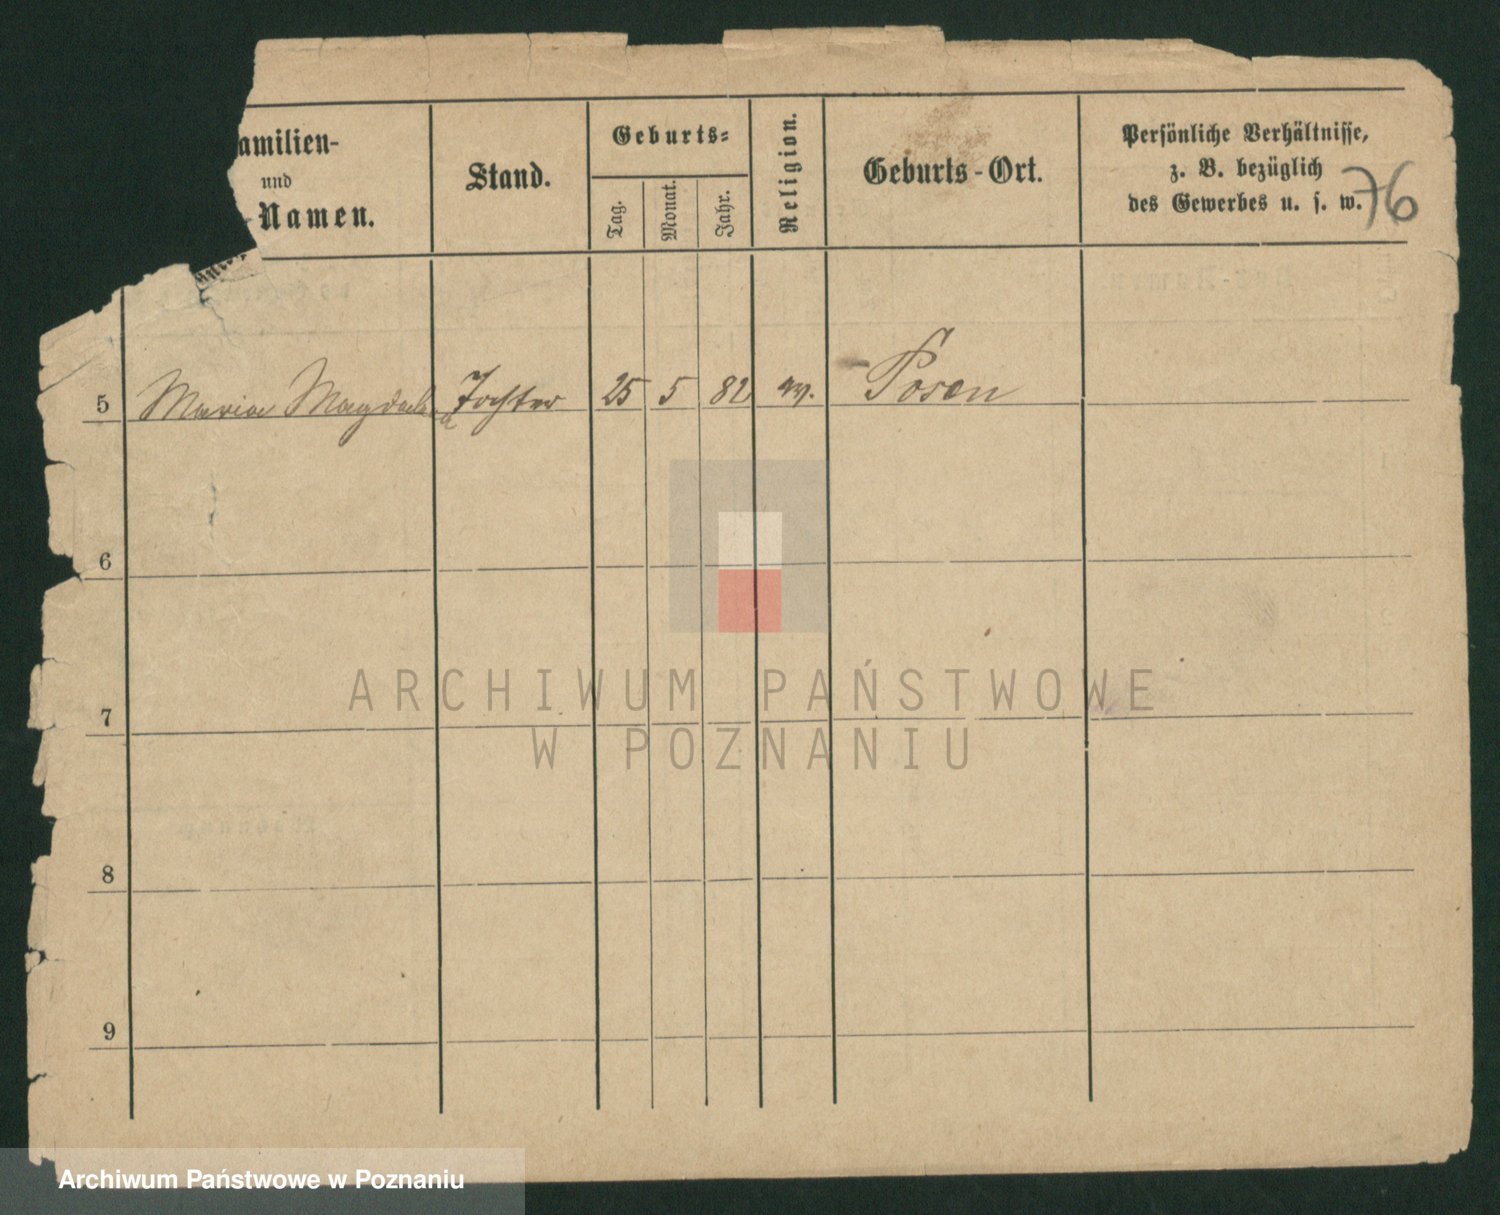 amilien-
und
Namen.
Stand.
Geburts-
Tag.
Monat.
Jahr.
Religion.
Geburts-Ort.
Persönliche Verhältnisse,
z. B. bezüglich
des Gewerbes u. s. w.
76
5 Maria Magdalena Tochter 25 5 82 ev. Posen
6
7
8
9
ARCHIWUM PAŃSTWOWE
W POZNANIU
Archiwum Państwowe w Poznaniu